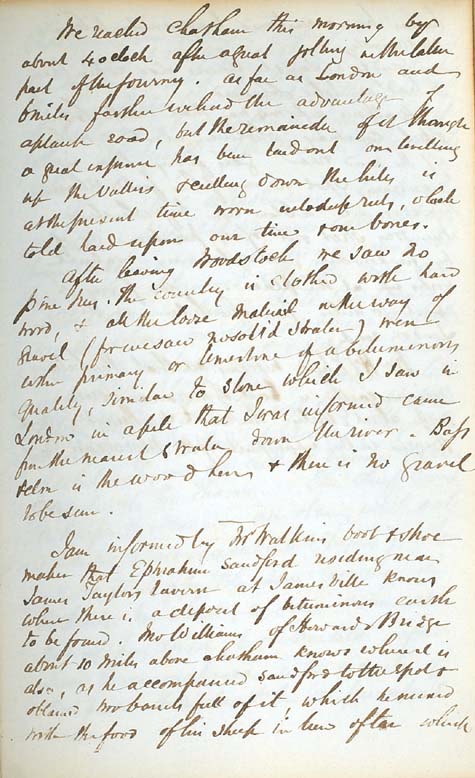 We reached Chatham this morning by
about 4 oclock after a great jolting in the latter
part of the journey. as far as London and
6 miles farther we had the advantage of
a plank road, but the remainder of it though
a great expense has been laid out on levelling
up the vallies & cutting down the hills is
at the present time worn into deep ruts, which
told hard upon our time & our bones.
After leaving Woodstock we saw no
pine trees. The country is clothed with hard
wood, & all the loose material in the way of
gravel (for we saw no solid strata) were
either primary or limestone of a bituminous
quality, similar to stone which I saw in
London in a pile that I was informed came
from the nearest strata down the river. Bass
& elm is the wood here & there is no gravel
to be seen.
I am informed by Mr Watkins boot & shoe
maker that Ephraim Sandford residing near
James Taylors Tavern at Jamesville knows
where there is a deposit of bituminous earth
to be found. Mr Williams of Howards Bridge
about 10 miles above Chatham knows where it is
also, as he accompanied Sandford to the spot &
obtained two barrels full of it, which he mixed
with the food of his sheep in lieu of tar which